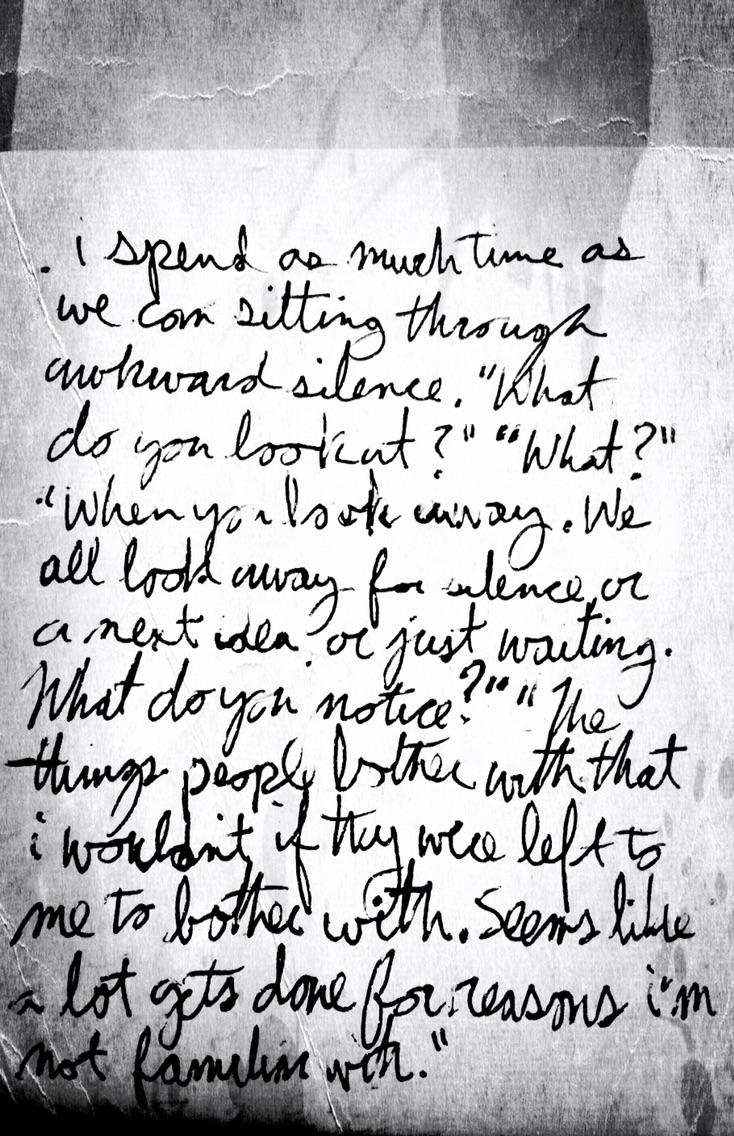 . i spend as much time as
we can sitting through
awkward silence. "What
do you look at?" "What?"
"When you look away. We
all look away for silence, or
a next idea, or just waiting.
What do you notice?" "The
things people bother with that
i wouldn't if they were left to
me to bother with. Seems like
a lot gets done for reasons i'm
not familiar with."